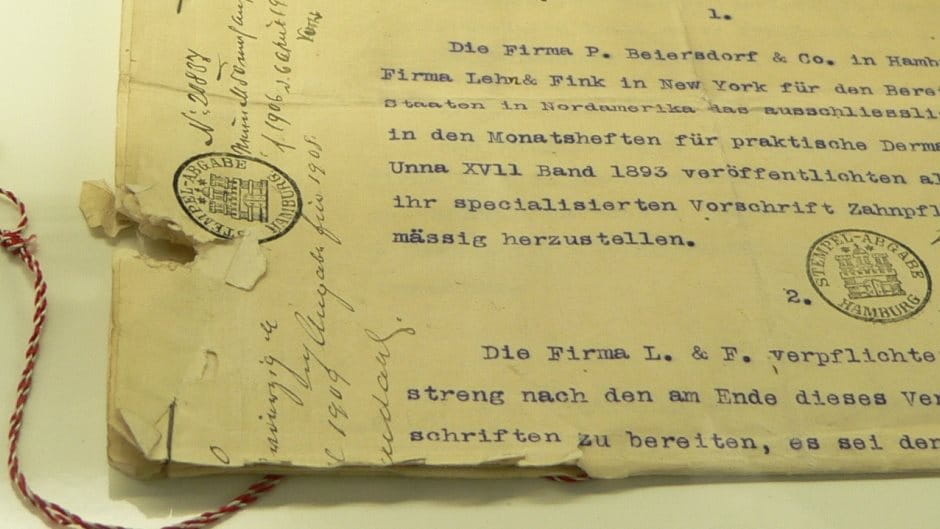 1.
Die Firma P. Beiersdorf & Co. in Hamb
Firma Lehn& Fink in New York für den Bere
Staaten in Nordamerika das ausschliessli
in den Monatsheften für praktische Derma
Unna XVll Band 1893 veröffentlichten al
ihr specialisierten Vorschrift Zahnpfl
mässig herzustellen.
2.
Die Firma L. & F. verpflichte
streng nach den am Ende dieses Ver
schriften zu bereiten, es sei der
STEMPEL-ABGABE
HAMBURG
STEMPEL-ABGABE
HAMBURG
1906
1908
1909